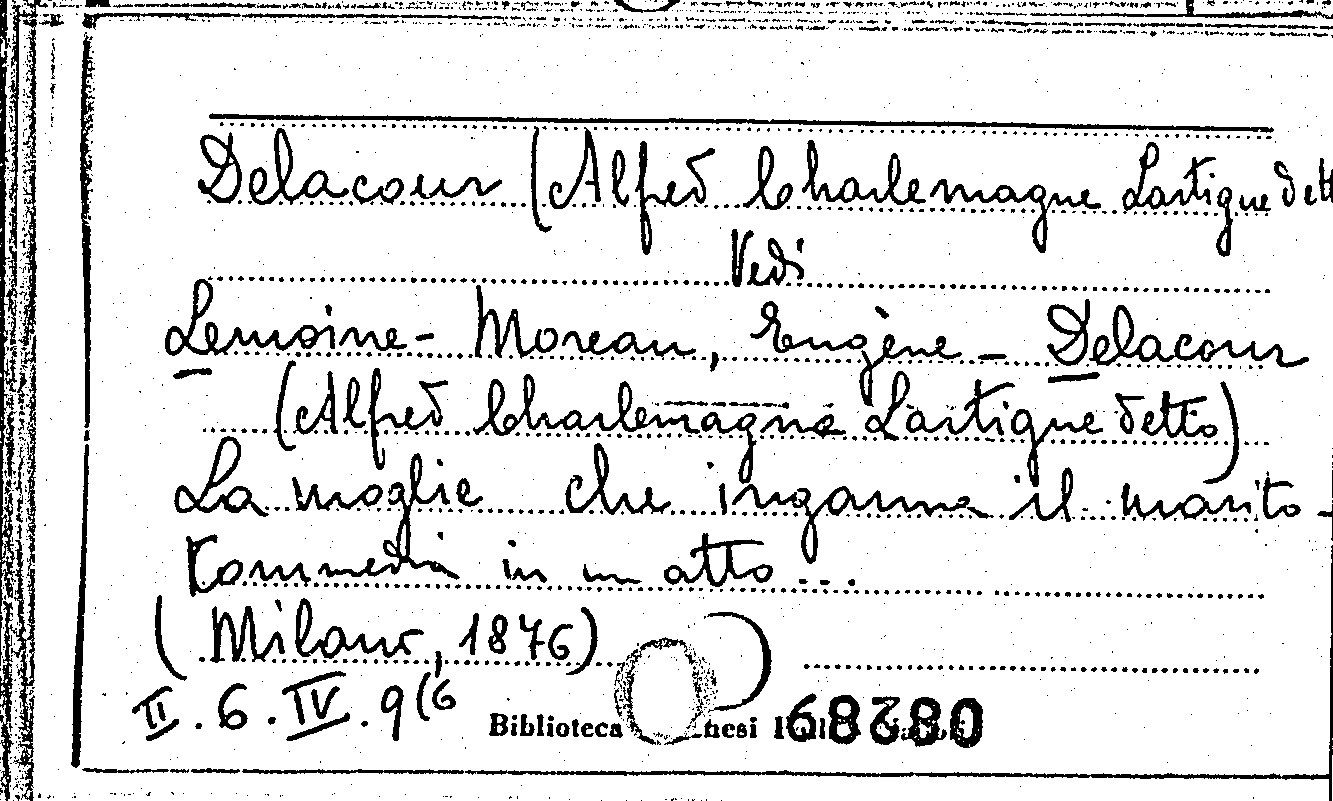 Delacour (Alfred Charlemagne Lartigue dett
Vedi
Lemoine-Moreau, Eugène - Delacour
(Alfred Charlemagne Lartigue detto)
La moglie che inganna il marito -
Commedia in un atto ...
(Milano, 1876)
II.6.IV.9(6
Biblioteca
68280